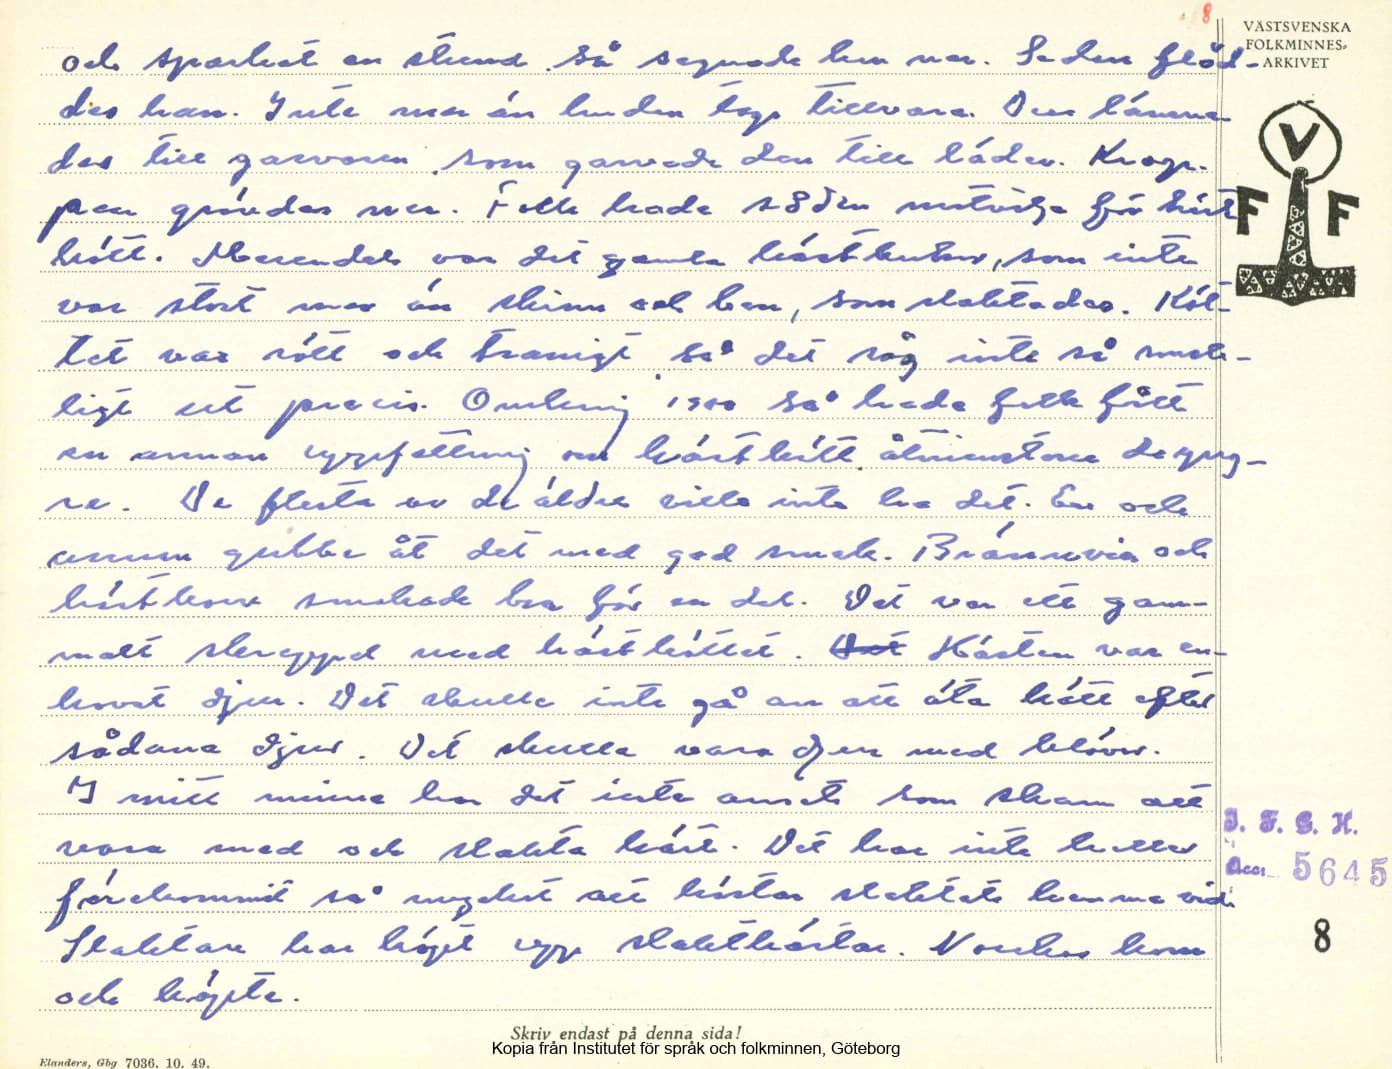 8
VÄSTSVENSKA
FOLKMINNES-
ARKIVET
och sparkat en stund så segnade hen ner. Sedan flöd-
des han. Inte mer än huden togs tillvara. Den lämna-
des till garvaren som garvade den till läder. Krop-
pen grävdes ner. Folk hade sådan motvilja för häst
kött. Merendels var det gamla hästkrakar, som inte
var stort mer än skinn och ben, som slaktades. Köt-
tet var rött och tranigt så det såg inte så smak-
ligt ut precis. Omkring 1900 så hade folk fått
en annan uppfattning om hästkött åtminstone de yng-
re. De flesta av de äldre ville inte ha det. En och
annan gubbe åt det med god smak. Brännvin och
hästkorv smakade bra för en del. Det var ett gam-
malt skreppel med hästköttet. Det Hästen var en-
hovat djur. Det skulle inte gå an att äta kött efter
sådana djur. Det skulle vara djur med klövar.
I mitt minne har det inte ansets som skam att
vara med och slakta häst. Det har inte heller
förekommit så mycket att hästar slaktats hemma vid.
Slaktare har köpt upp slakthästar. Norskar kom
och köpte.
V
F F
I. F. G. H.
Acc. 5645
8
Skriv endast på denna sida!
Kopia från Institutet för språk och folkminnen, Göteborg
Elanders, Gbg 7036. 10. 49.